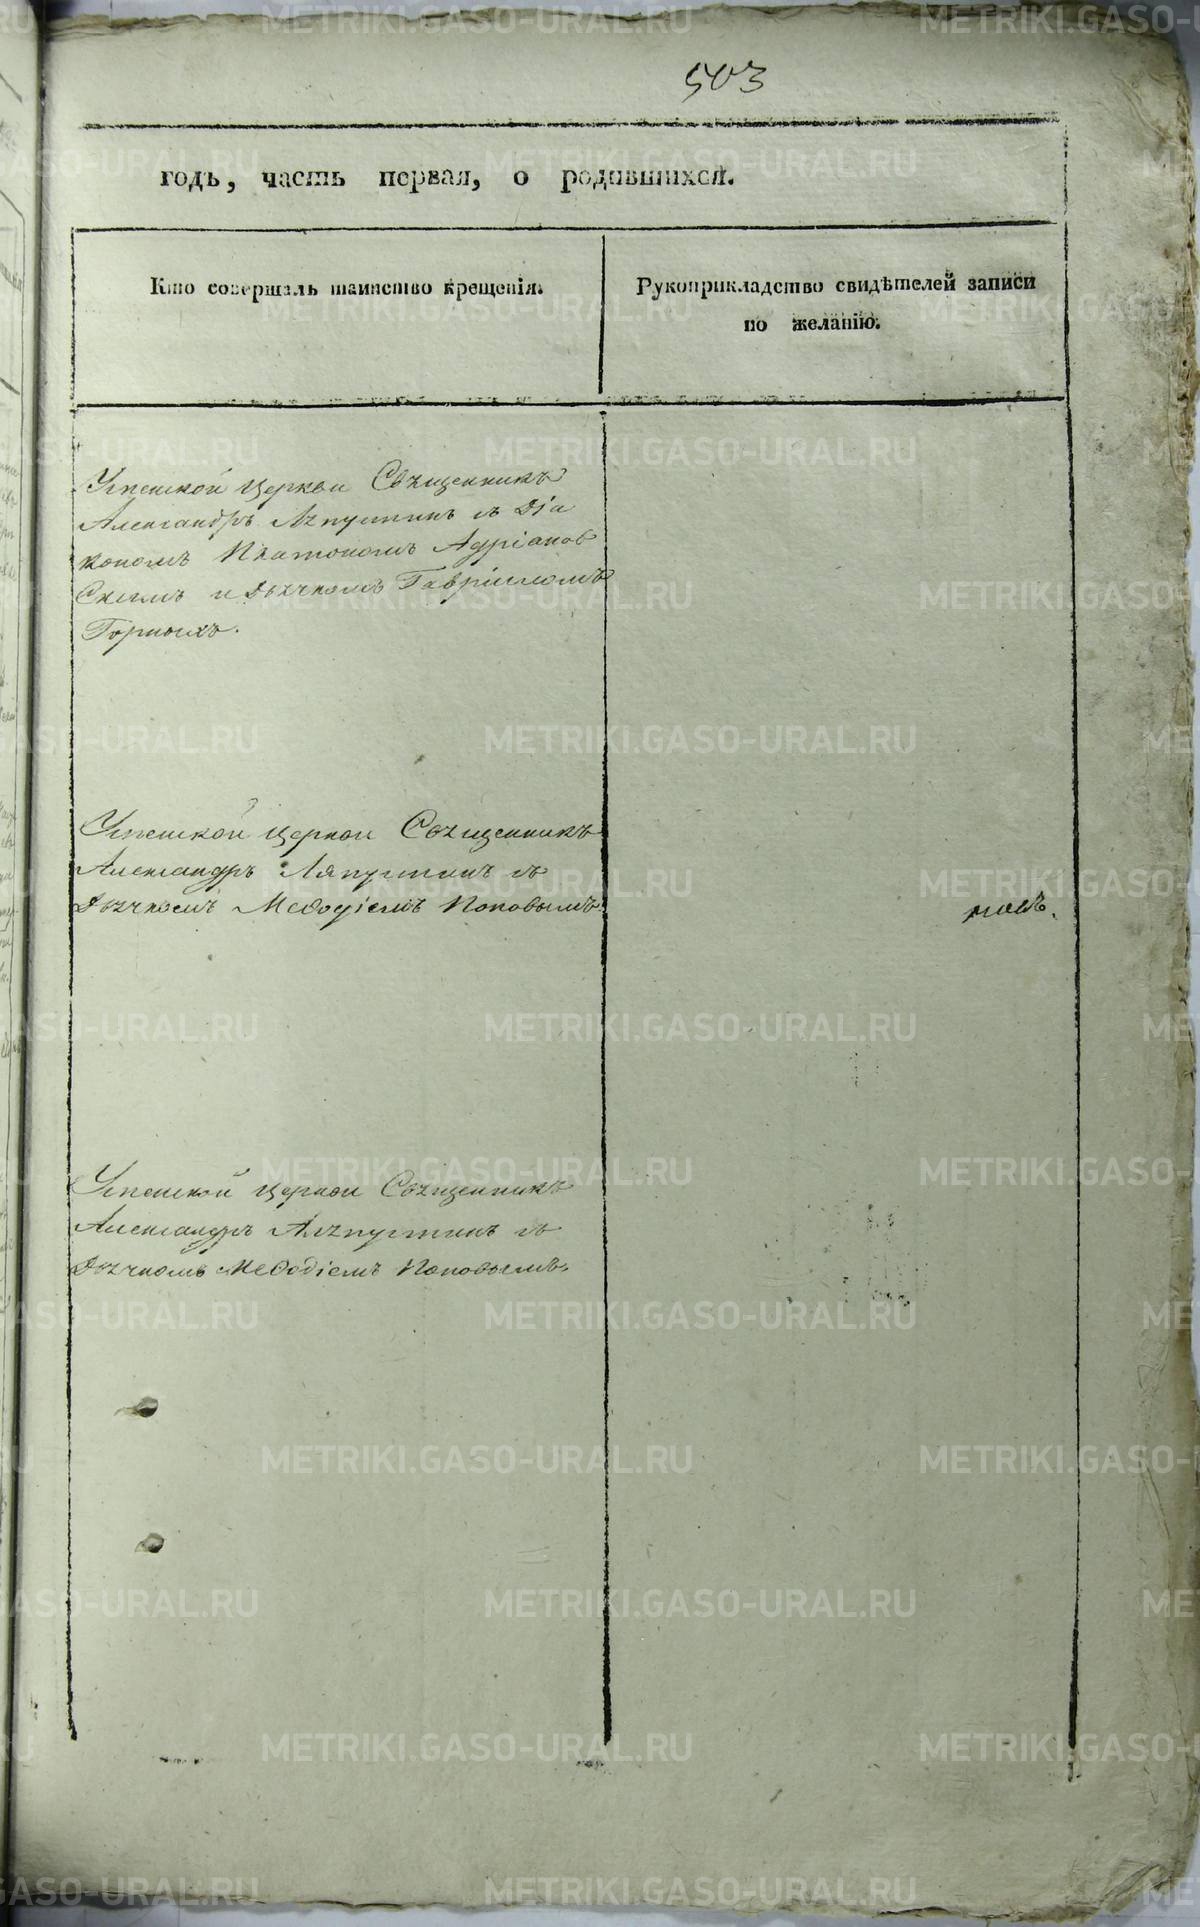 503
годъ, часть первая, о родившихся.
Кто совершалъ таинство крещенія.
Рукоприкладство свидѣтелей записи
по желанію.
Церкви Священникъ
Александръ Ляпустинъ съ Діа
кономъ Платономъ Адріанов
скимъ и Дьячкомъ Гавріиломъ
Горныхъ.
Церкви Священникъ
Александръ Ляпустинъ съ
Дьячкомъ Меѳодіемъ Поповымъ.
Церкви Священникъ
Александръ Ляпустинъ съ
Дьячкомъ Меѳодіемъ Поповымъ.
METRIKI.GASO-URAL.RU